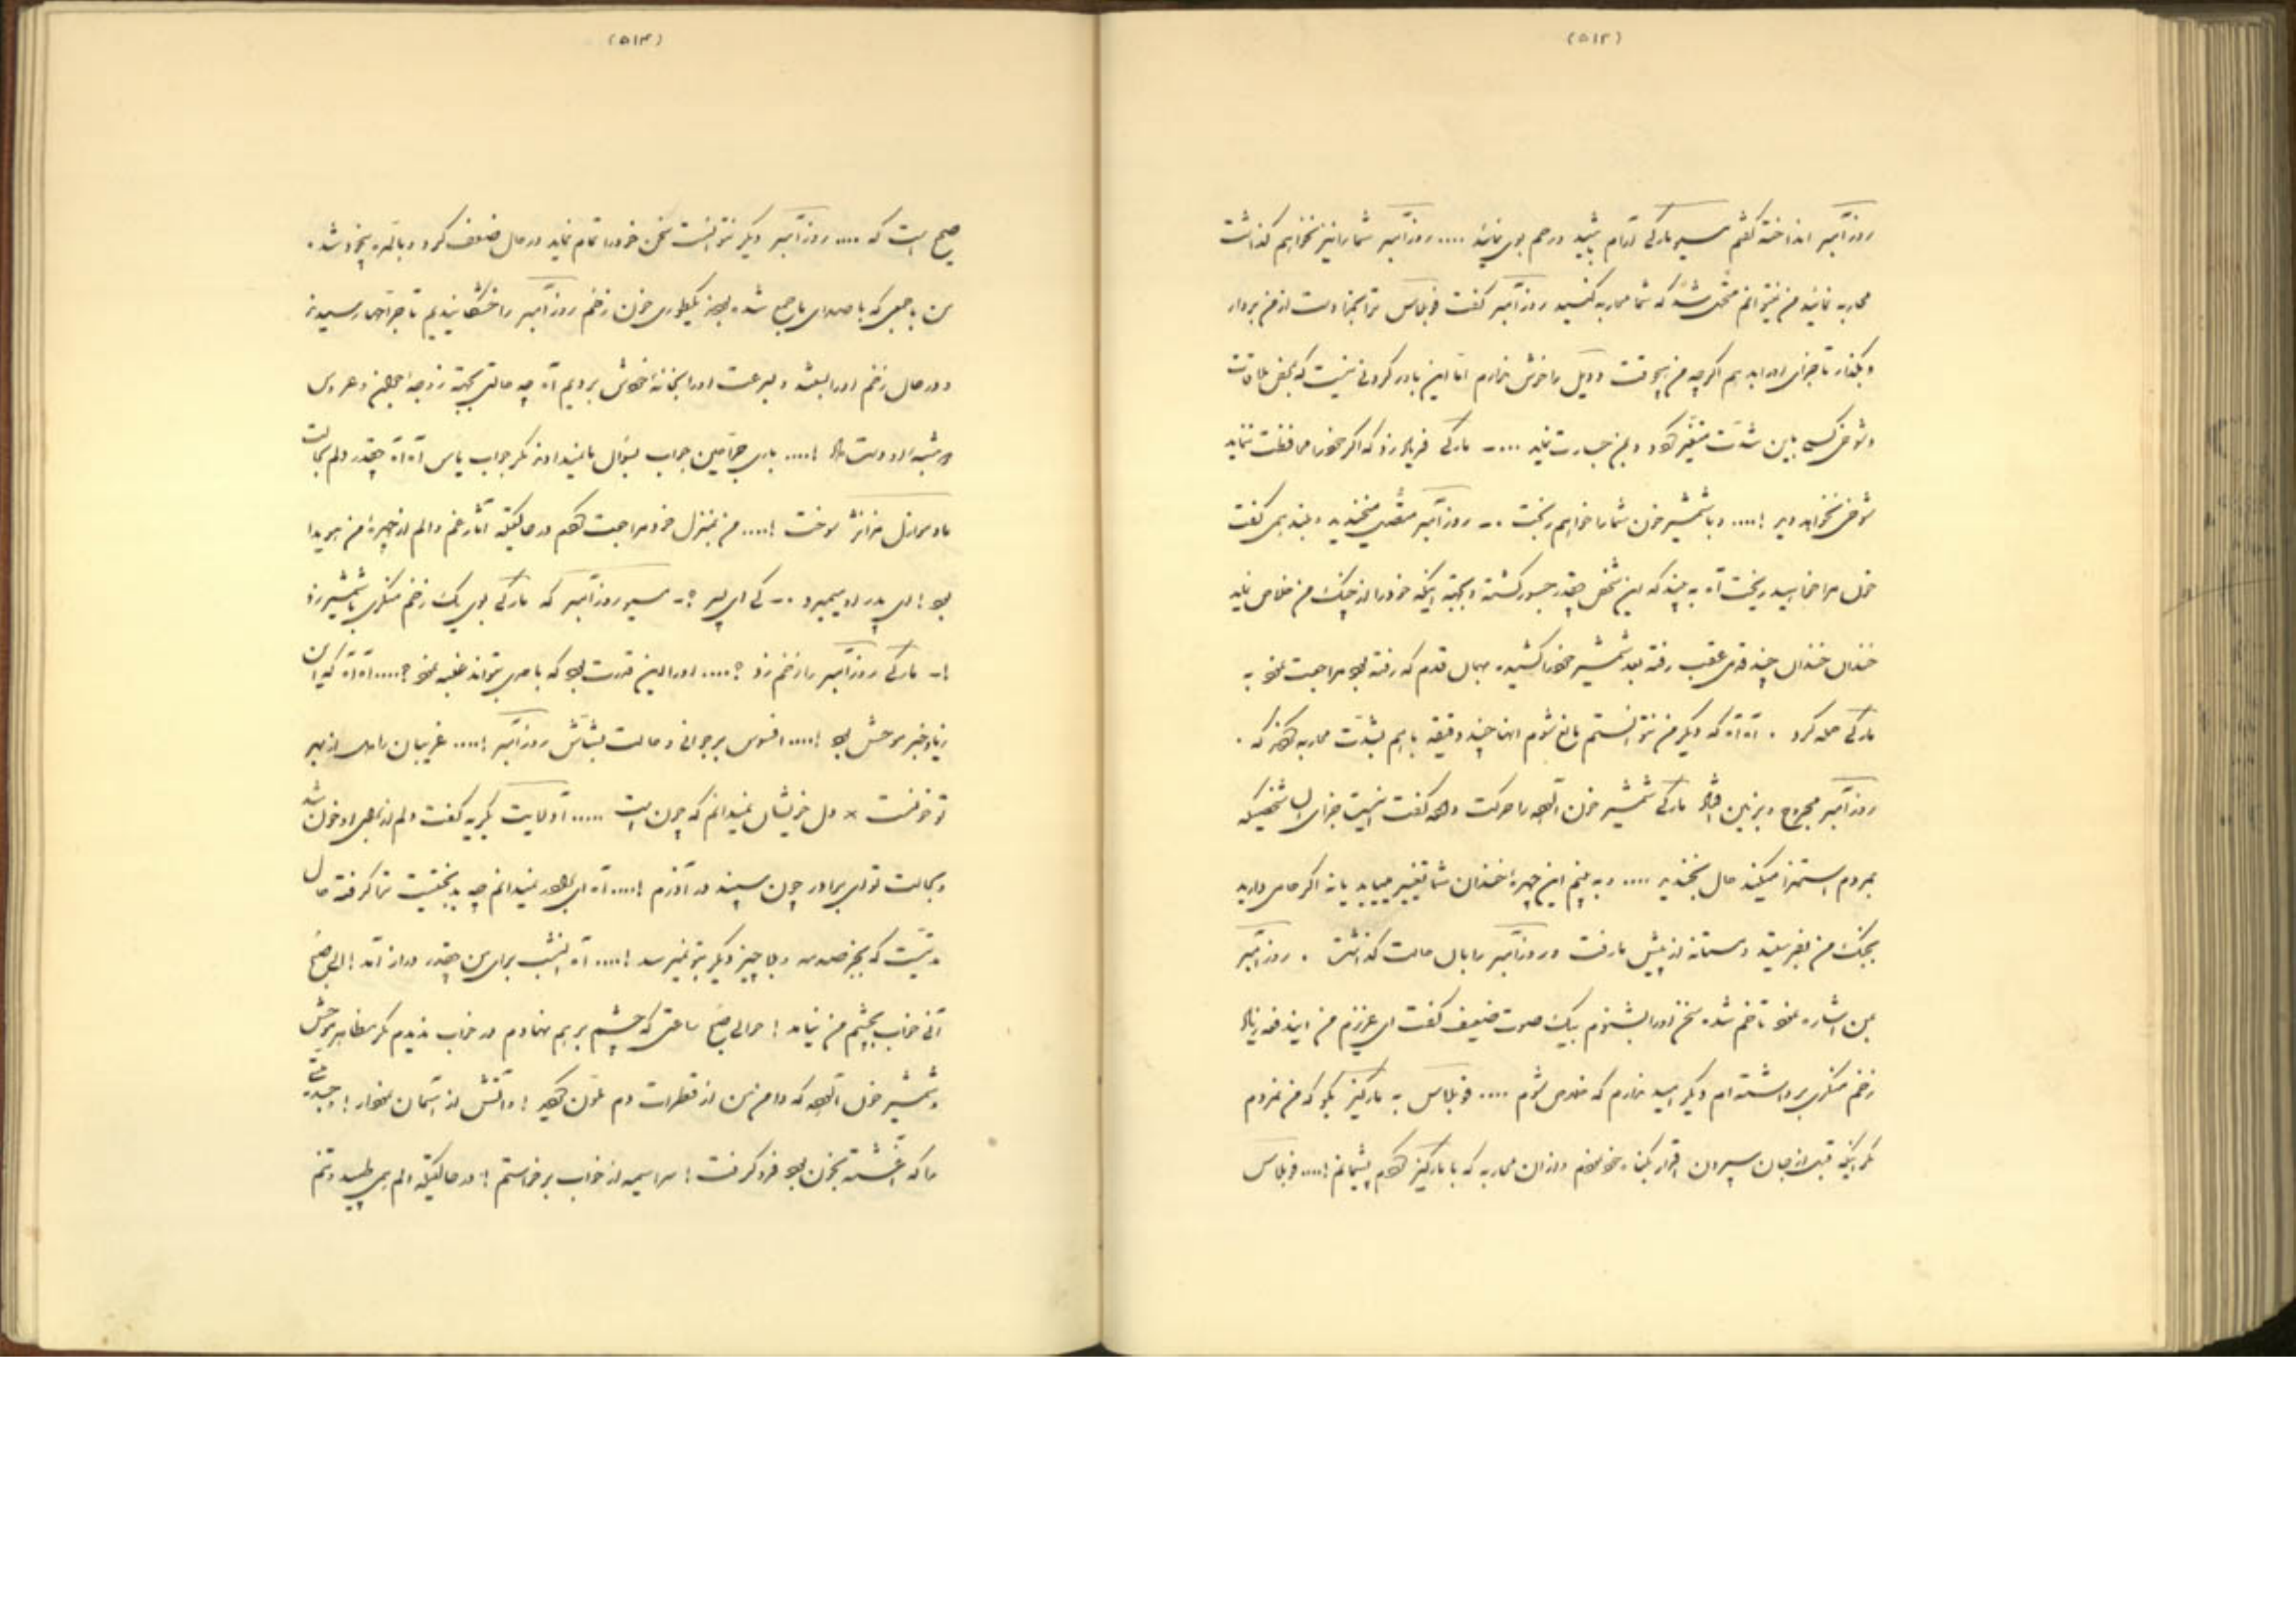 (۵۱۲)
روز آمبر انداخته گفتم مسیو مارکی آرام باشید و رحم بوی نمائید .... روز آمبر شما را نیز نخواهم گذاشت
محاربه نمائید من نمیتوانم متحمل شد که شما محاربه کنید روز آمبر گفت فوبلاس ترا بخدا دست از من بردار
و بگذار تا جزای او را بدهم اگرچه من هیچوقت دوئل را خوش ندارم اما این باور کردنی نیست که بمحض ملاقات
و شوخی کسی باین شدت متغیر گردد و بمن جسارت نماید .... ـ مارکی فریاد زد که اگر خود را محافظت ننماید
شوخی نخواهد دید !.... و با شمشیر خون شما را خواهم ریخت .ـ روز آمبر متصل میخندید و بلند همی گفت
خون مرا خواهید ریخت آه به بیند که این شخص چقدر جسور گشته و بجهة اینکه خود را از چنگ من خلاص نماید
خندان خندان چند قدمی عقب رفته بعد شمشیر خود را کشیده بهمان قدم که رفته بود مراجعت نمود به
مارکی حمله کرد . آه آه که دیگر من نتوانستم مانع شوم آنها چند دقیقه با هم بشدت محاربه کردند که .
روز آمبر مجروح و بزمین افتاد مارکی شمشیر خون آلود را حرکت داده گفت اینست جزای آن شخصیکه
بمردم استهزا میکند حال بخندید .... و به بینم این چهرهٔ خندان شما تغییر مییابد یا نه اگر حامی دارید
بجنگ من بفرستید و مستانه از پیش ما رفت و روز آمبر را بآن حالت گذاشت . روز آمبر
بمن اشاره نمود تا خم شده سخن او را بشنوم بیک صوت ضعیف گفت ای عزیزم من ایندفعه زیاد
زخم منکری برداشته ام دیگر امید ندارم که خلاص شوم .... فوبلاس به مارکیز بگو که من نمردم
مگر اینکه قبل از جان سپردن اقرار بگناه خود نمودم و از آن محاربه که با مارکیز کردم پشیمانم !.... فوبلاس
(۵۱۳)
صحیح است که .... روز آمبر دیگر نتوانست سخن خود را تمام نماید در حال ضعف کرد و بالمره بیخود شد .
من با جمعی که با صدای ما جمع شده بودند بیکطوری خون زخم روز آمبر را خشکانیدیم تا جراحها رسیدند
و در حال زخم او را بسته و بسرعت او را بخانهٔ خودش بردیم آه چه حالتی بجهة زوجهٔ جمیلهٔ و عروس
و دوست داد !.... باری جراحین جواب بسؤال ما نمیدادند مگر جواب یأس آه آه چقدر دلم بحالت
مادموازل منزانژ سوخت !.... من بمنزل خود مراجعت کردم در حالیکه آثار غم و الم از چهرهٔ من هویدا
بود ! ای پدر او میمیرد .ـ کی ای پسر ؟ـ مسیو روز آمبر که مارکی بوی یک زخم منکری با شمشیر زد
!ـ مارکی روز آمبر را زخم زد ؟.... او را این قدرت بود که با وی بتواند غلبه نمود ؟.... آه آه که این
زیاد خبر موحش بود !.... افسوس بر جوانی و حالت بشاش روز آمبر !.... غریبان را دل از بهر
تو خونست × دل خویشان نمیدانم که چون است ..... آدلائید بگریه گفت دلم از برای او خون شد
و بحالت تو ای برادر چون سپند در آذرم !.... آه ای برادر نمیدانم چه بدبختیست ترا گرفته حال
مدتیست که بجز صدمه و بلا چیز دیگر بتو نمیرسد !.... آه امشب برای من چقدر دراز آمد ! الی صبح
آنی خواب بچشم من نیامد ! حوالی صبح ساعتی که چشم بر هم نهادم در خواب ندیدم مگر مظاهر موحش
و شمشیر خون آلود که دامن من از قطرات دم ملون گردید ! و آتش از آسمان
ما که آغشته بخون بود فرو گرفت ! سراسیمه از خواب برخواستم ! در حالیکه دلم همی طپید و تنم